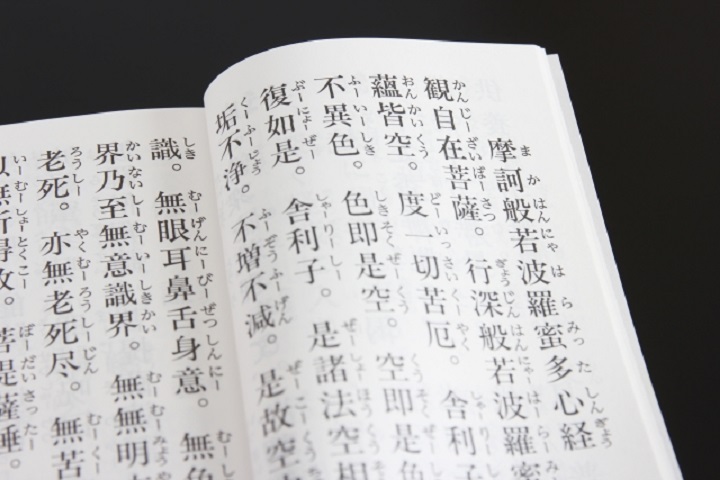 まかはんにゃはらみったしんぎょう
摩訶般若波羅蜜多心経
かんじーざいぼーさつ ぎょうじんはんにゃーはーらーみ
観自在菩薩。行深般若波羅蜜
おんかいくう どーいっさいくーやく しゃーりーしー
蘊皆空。度一切苦厄。舎利子
ふーいーしき しきそくぜーくう くうそくぜーし
不異色。色即是空。空即是色
ぶーにょーぜー しゃーりーしー ぜーしょーほうくうそ
復如是。舎利子。是諸法空相
くーふーじょう ふーぞうふーげん ぜーこーくう
垢不浄。不増不減。是故空
しき むーげんにーびーぜっしんにー むーし
識。無眼耳鼻舌身意。無色
かいないしーむーいーしきかい むーむーみょう
界乃至無意識界。無無明
ろうしー やくむーろうしーじん むーくー
老死。亦無老死尽。無苦
いーむーしょーとくこー ぼーだいさったー
以無所得故。菩提薩埵。